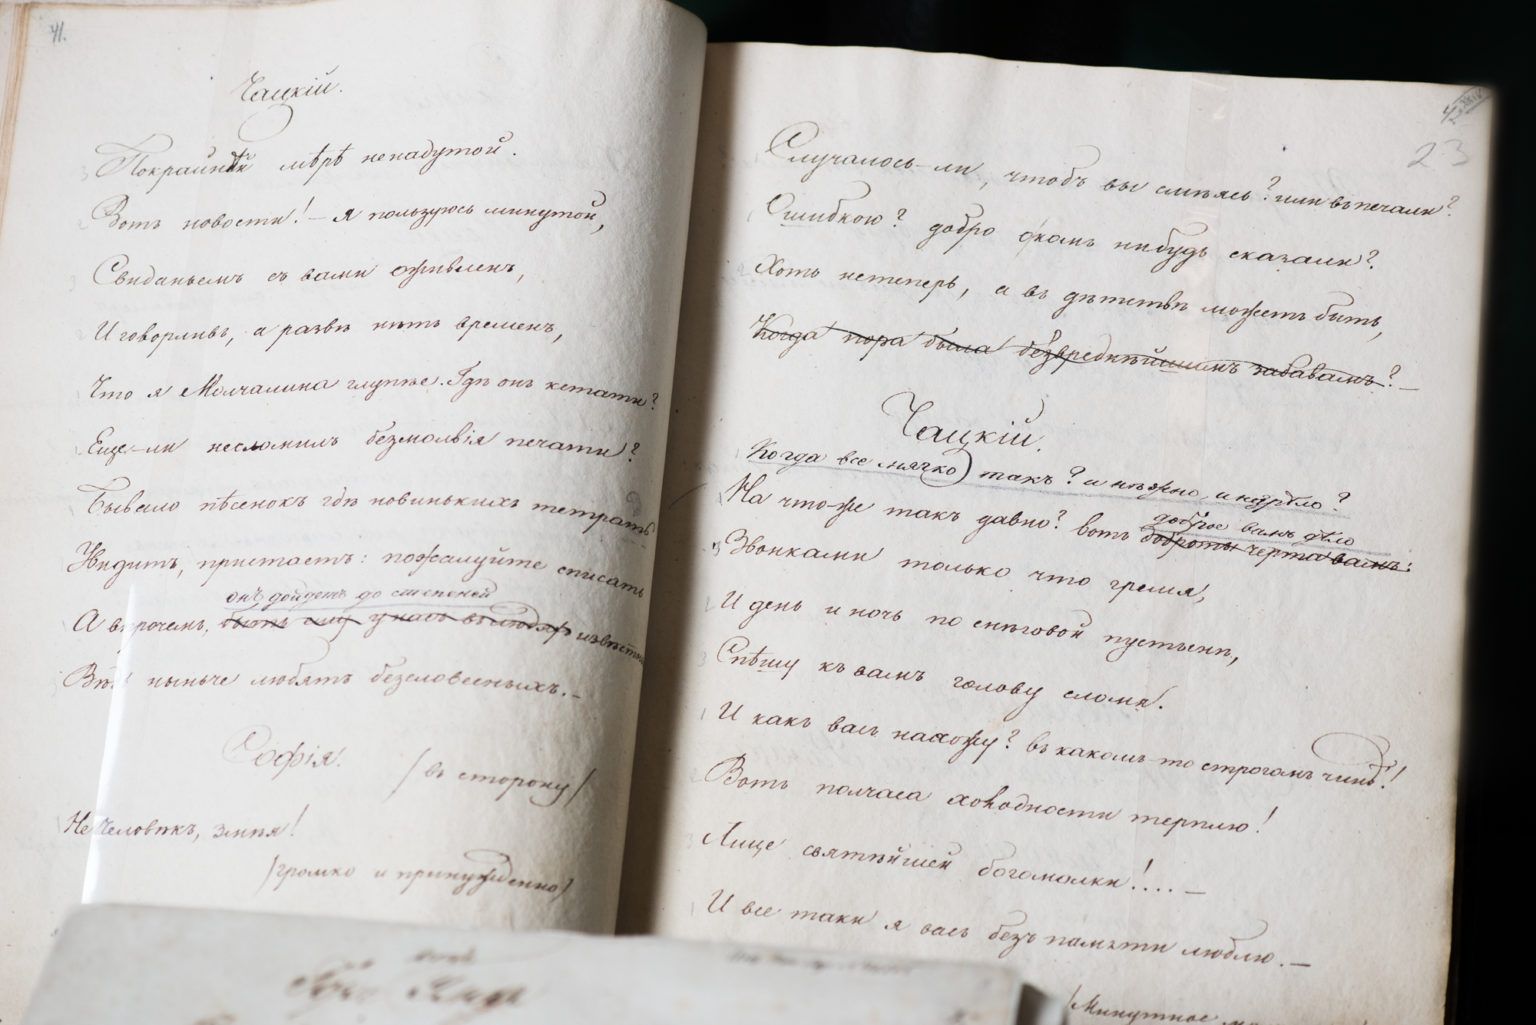 41.
Чацкій.
Покрайнѣй мѣрѣ ненадутой.
Вотъ новости! — я пользуюсь минутой,
Свиданьемъ съ вами оживленъ,
И говорливъ, а развѣ нѣтъ временъ,
Что я Молчалина глупѣе. Гдѣ онъ кстати?
Еще-ли несломилъ безмолвія печати?
Бывало пѣсенокъ гдѣ новинькихъ тетрать
Увидитъ, пристаетъ: пожалуйте списать
онъ дойдетъ до степеней
А впрочемъ, быть ему у насъ въ людяхъ извѣстн
Вѣдь нынче любятъ безсловесныхъ. —
Софія.
/въ сторону/
Не человѣкъ, змѣя!
/громко и принужденно/
23
Случалось-ли, чтобъ вы смѣясь? или въ печали?
Ошибкою? добро окомъ нибудь сказали?
Хоть нетеперь, а въ дѣтствѣ можетъ быть,
Когда пора была безвреднѣйшимъ забавамъ? —
Чацкій.
Когда все мягко такъ? и нѣжно, и незрѣло?
На что-же такъ давно? вотъ доброты черта вамъ:
доброе вамъ дѣло
Звонками только что гремя,
И день и ночь по снѣговой пустынѣ,
Спѣшу къ вамъ голову сломя.
И какъ васъ нахожу? въ какомъ-то строгомъ чинѣ!
Вотъ полчаса холодности терплю!
Лице святѣйшей богомолки!... —
И все таки я васъ безъ памяти люблю. —
/Минутное